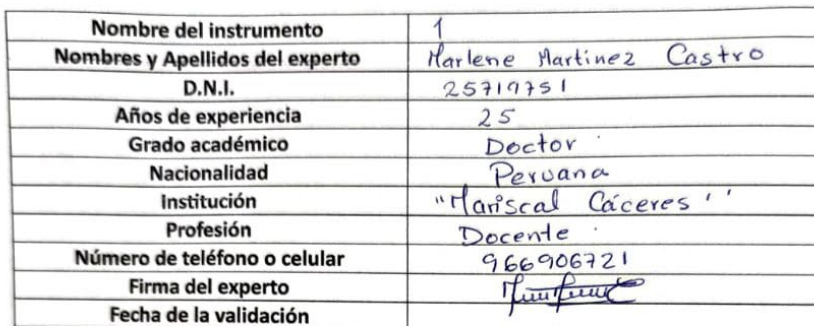 Nombre del instrumento 1
Nombres y Apellidos del experto Marlene Martinez Castro
D.N.I. 25719751
Años de experiencia 25
Grado académico Doctor
Nacionalidad Peruana
Institución "Mariscal Cáceres"
Profesión Docente
Número de teléfono o celular 966906721
Firma del experto
Fecha de la validación